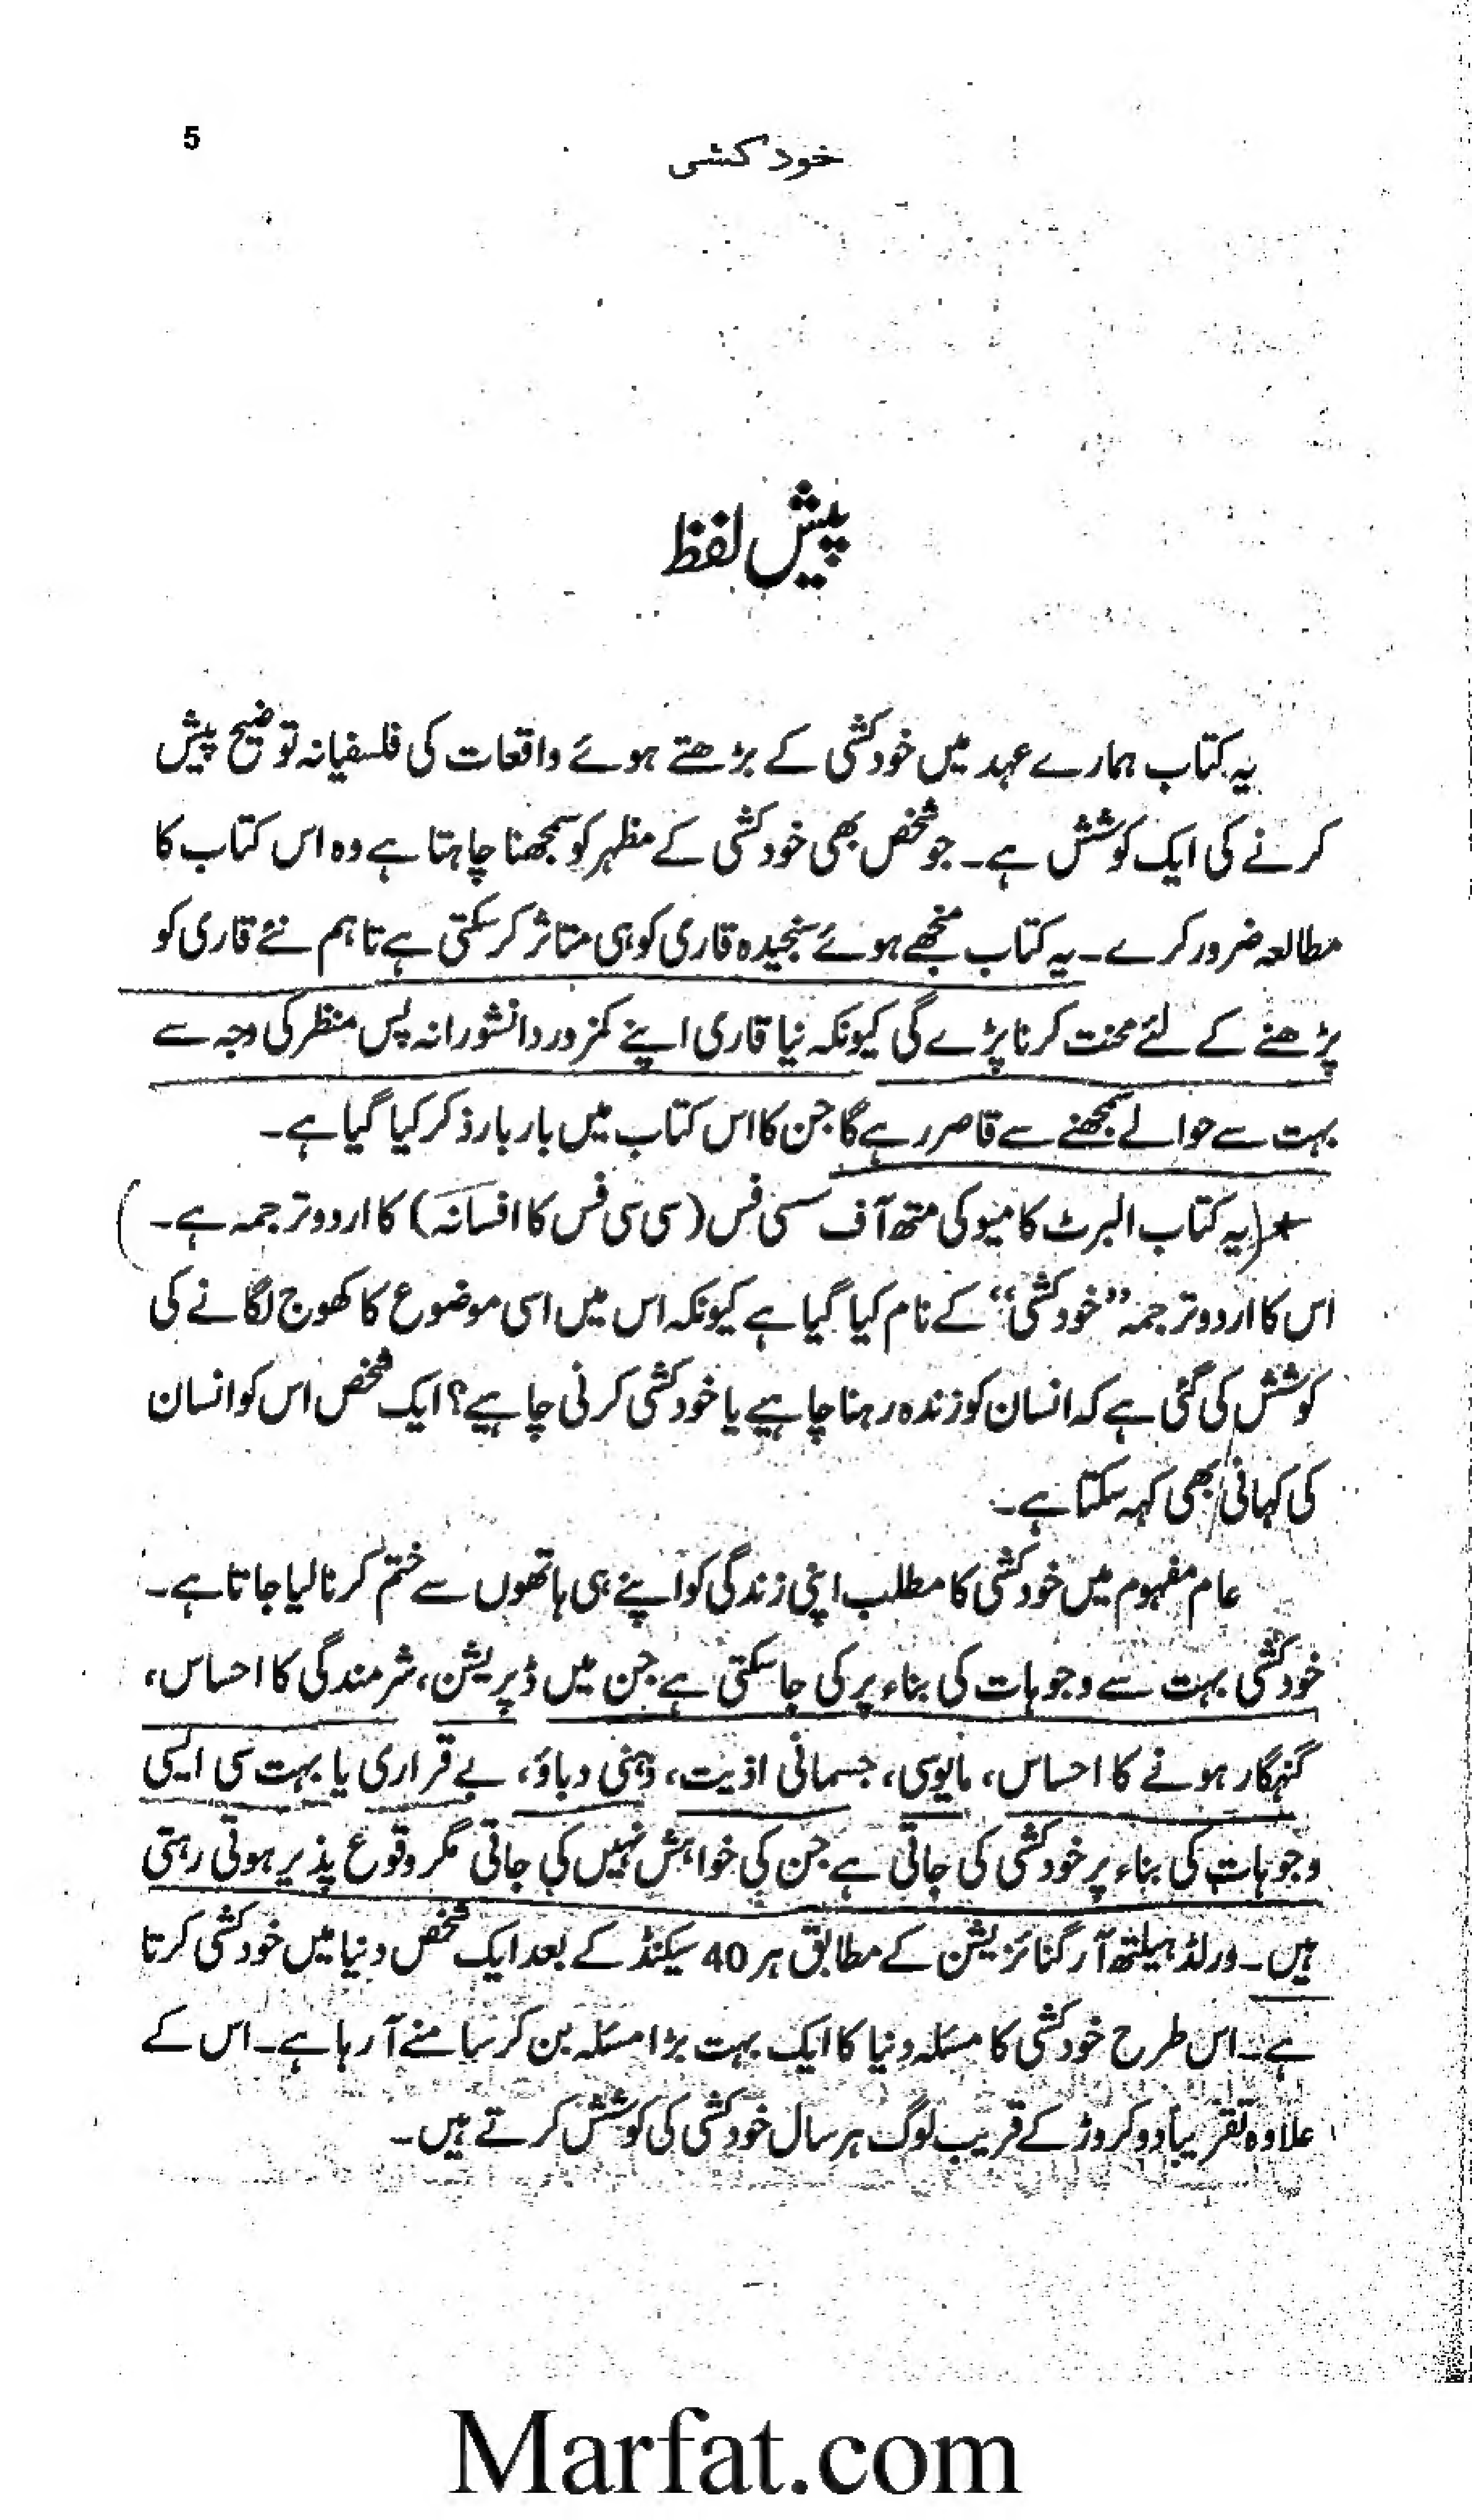 5
خودکشی
پیش لفظ
یہ کتاب ہمارے عہد میں خودکشی کے بڑھتے ہوئے واقعات کی فلسفیانہ توضیح پیش
کرنے کی ایک کوشش ہے۔ جو شخص بھی خودکشی کے مظہر کو سمجھنا چاہتا ہے وہ اس کتاب کا
مطالعہ ضرور کرے۔ یہ کتاب منجھے ہوئے سنجیدہ قاری کو ہی متاثر کر سکتی ہے تاہم نئے قاری کو
پڑھنے کے لئے محنت کرنا پڑے گی کیونکہ نیا قاری اپنے کمزور دانشورانہ پس منظر کی وجہ سے
بہت سے حوالے سمجھنے سے قاصر رہے گا جن کا اس کتاب میں بار بار ذکر کیا گیا ہے۔
★ (یہ کتاب البرٹ کامیو کی متھ آف سسی فس (سی سی فس کا افسانہ) کا اردو ترجمہ ہے۔)
اس کا اردو ترجمہ ”خودکشی“ کے نام کیا گیا ہے کیونکہ اس میں اسی موضوع کا کھوج لگانے کی
کوشش کی گئی ہے کہ انسان کو زندہ رہنا چاہیے یا خودکشی کرنی چاہیے؟ ایک شخص اس کو انسان
کی کہانی بھی کہہ سکتا ہے۔
عام مفہوم میں خودکشی کا مطلب اپنی زندگی کو اپنے ہی ہاتھوں سے ختم کرنا لیا جاتا ہے۔
خودکشی بہت سے وجوہات کی بناء پر کی جا سکتی ہے جن میں ڈپریشن، شرمندگی کا احساس،
گنہگار ہونے کا احساس، مایوسی، جسمانی اذیت، ذہنی دباؤ، بے قراری یا بہت سی ایسی
وجوہات کی بناء پر خودکشی کی جاتی ہے جن کی خواہش نہیں کی جاتی مگر وقوع پذیر ہوتی رہتی
ہیں۔ ورلڈ ہیلتھ آرگنائزیشن کے مطابق ہر 40 سیکنڈ کے بعد ایک شخص دنیا میں خودکشی کرتا
ہے۔ اس طرح خودکشی کا مسئلہ دنیا کا ایک بہت بڑا مسئلہ بن کر سامنے آ رہا ہے۔ اس کے
علاوہ تقریباً دو کروڑ کے قریب لوگ ہر سال خودکشی کی کوشش کرتے ہیں۔
Marfat.com